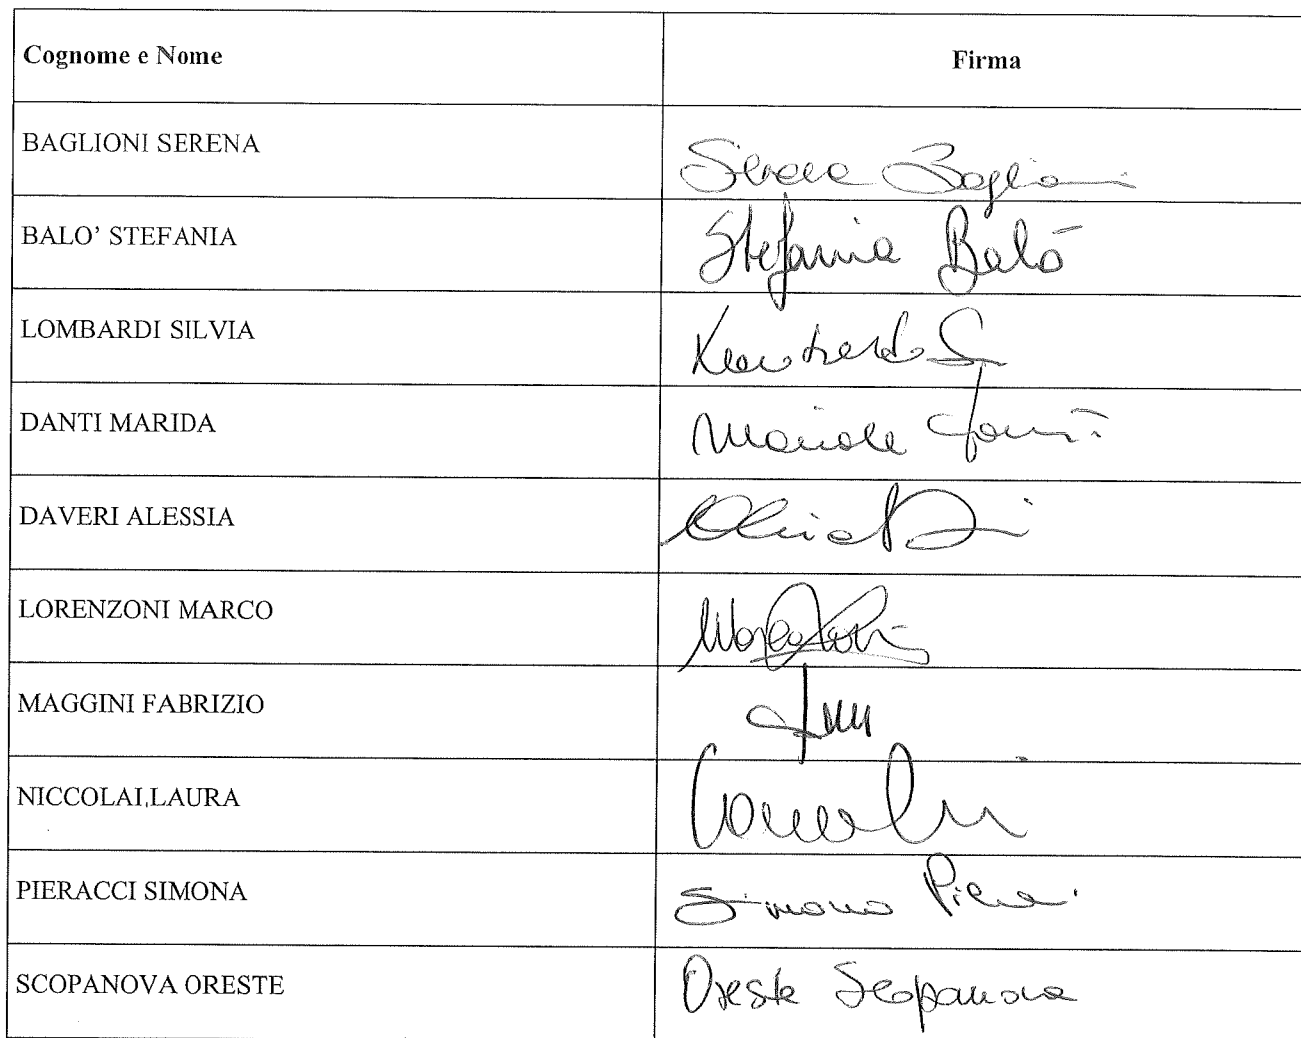 Cognome e Nome Firma
BAGLIONI SERENA Serena Baglioni
BALO' STEFANIA Stefania Balò
LOMBARDI SILVIA
DANTI MARIDA Marida Danti
DAVERI ALESSIA
LORENZONI MARCO Marco
MAGGINI FABRIZIO
NICCOLAI,LAURA
PIERACCI SIMONA Simona
SCOPANOVA ORESTE Oreste Scopanova